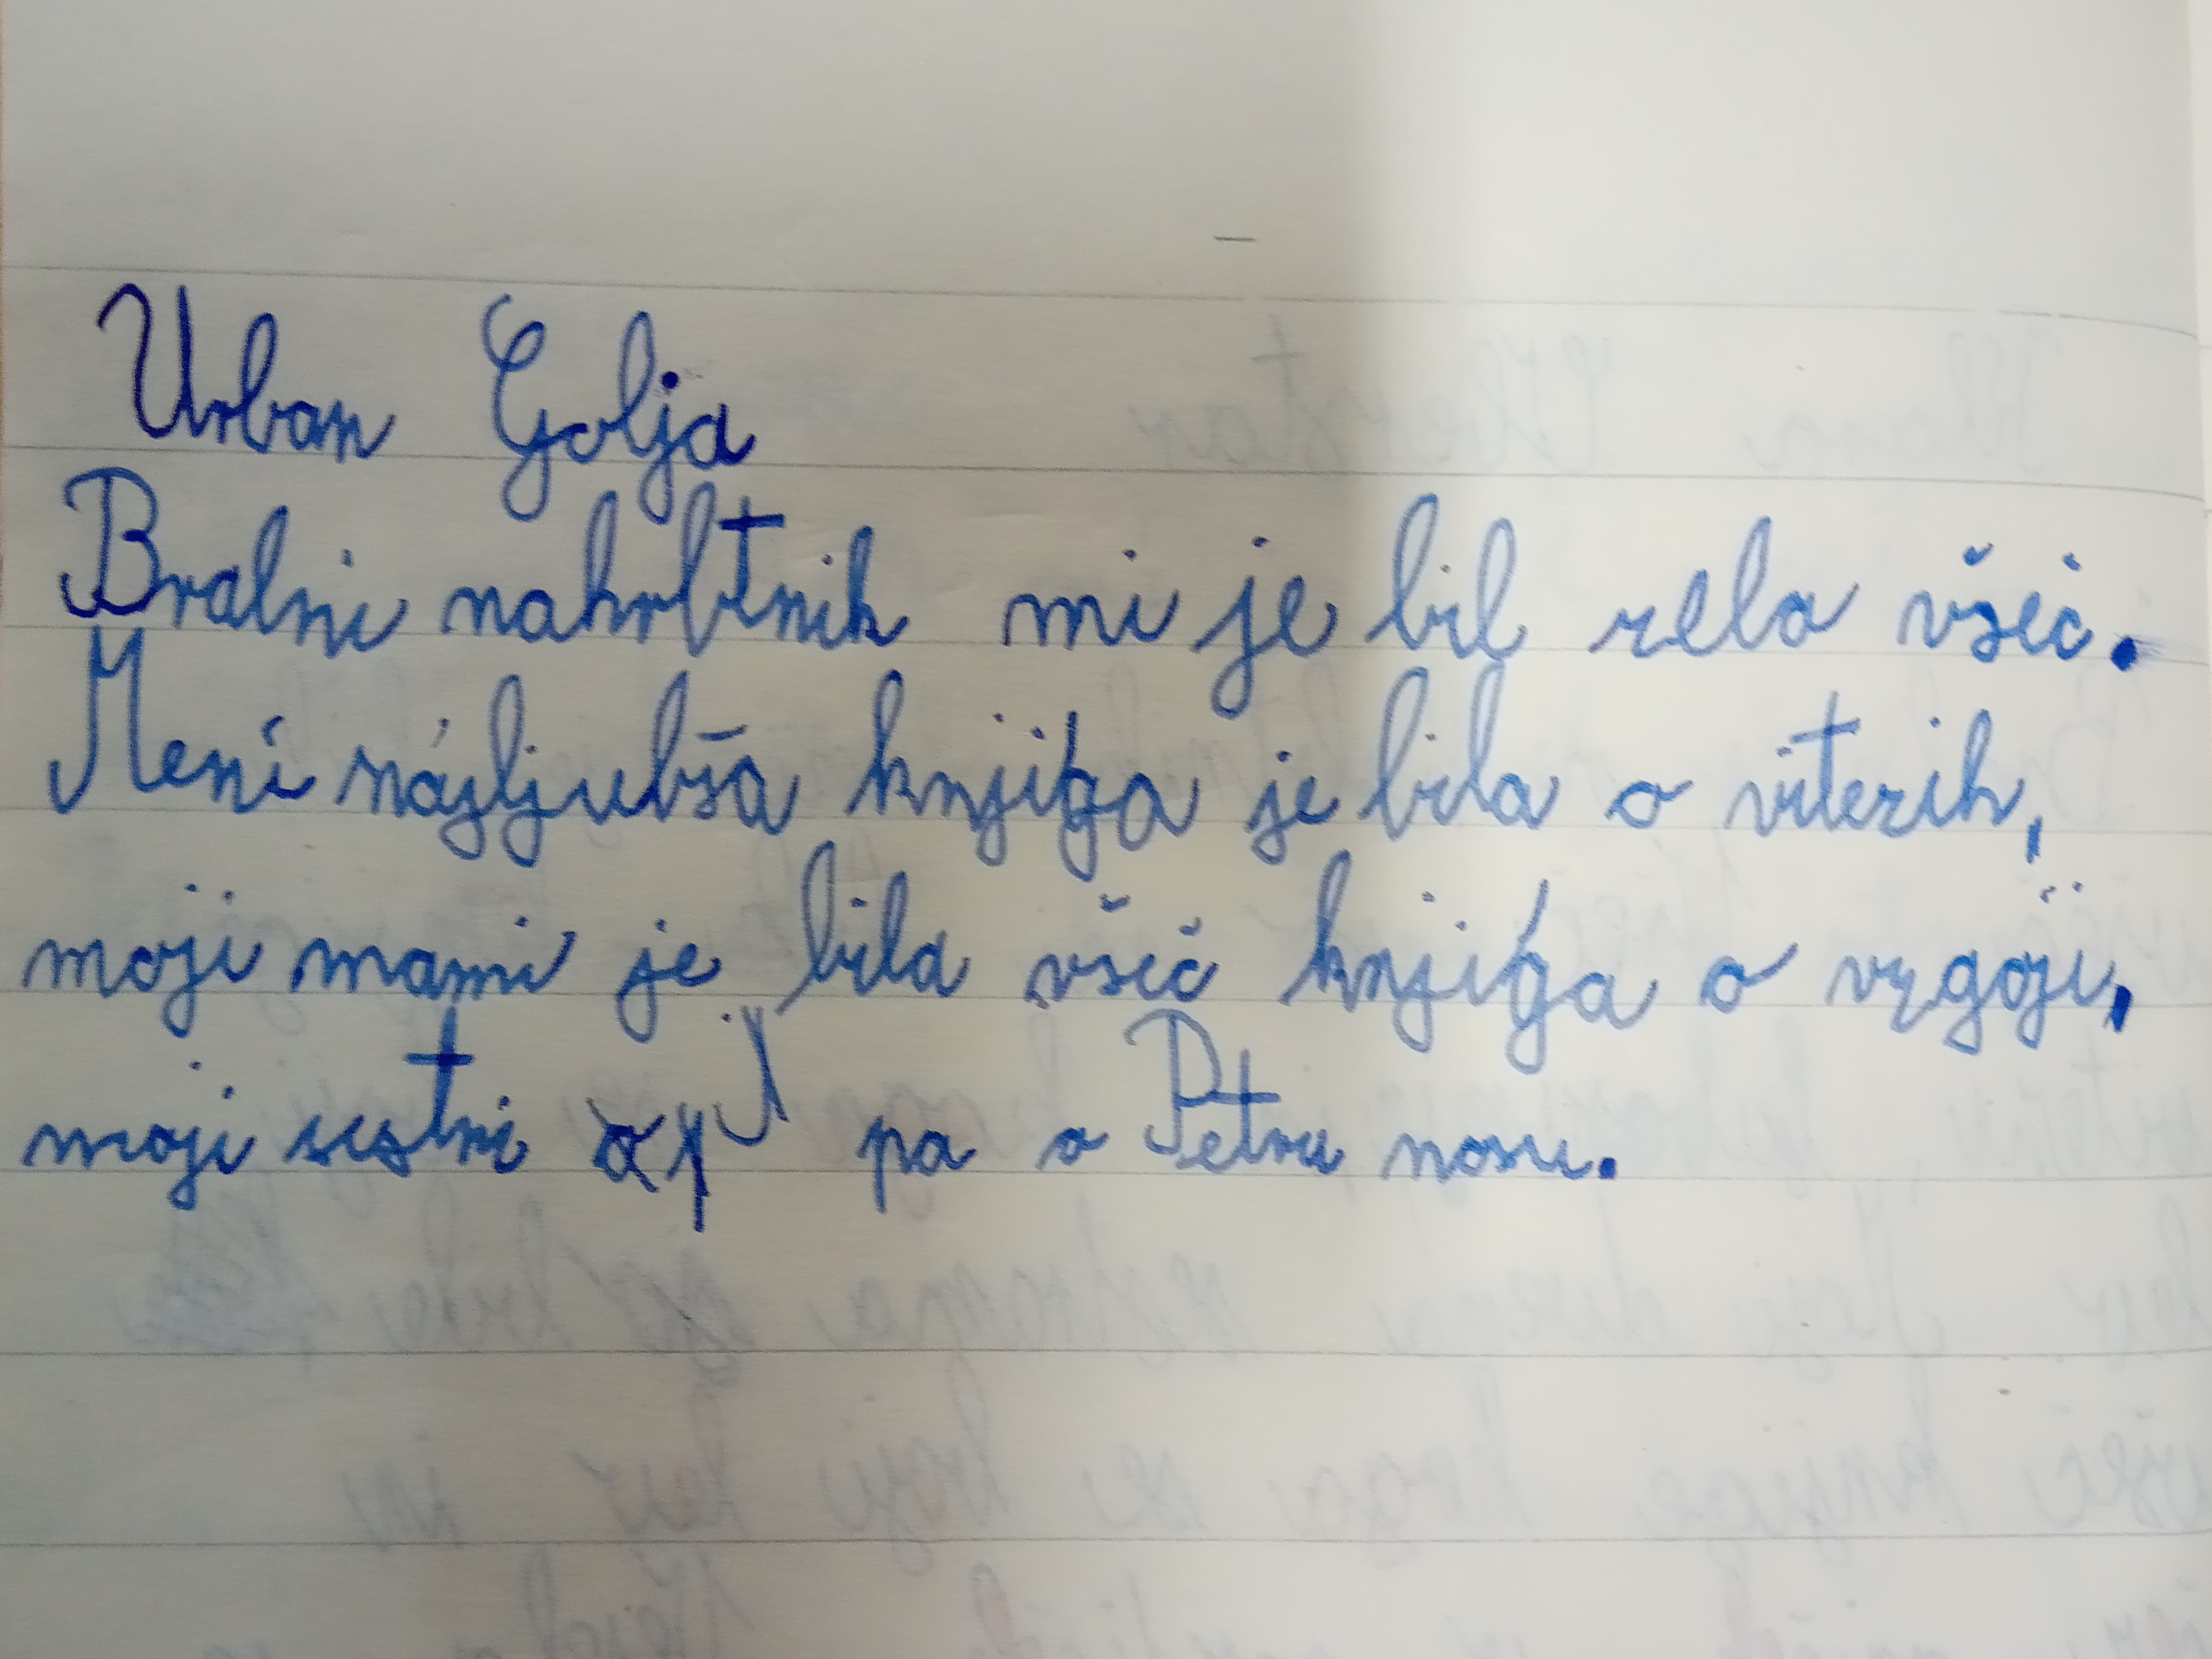 Urban Golja
Bralni nahrbtnik mi je bil zelo všeč.
Meni najljubša knjiga je bila o vitezih,
moji mami je bila všeč knjiga o vzgoji,
moji sestri pa o Petru nosu.